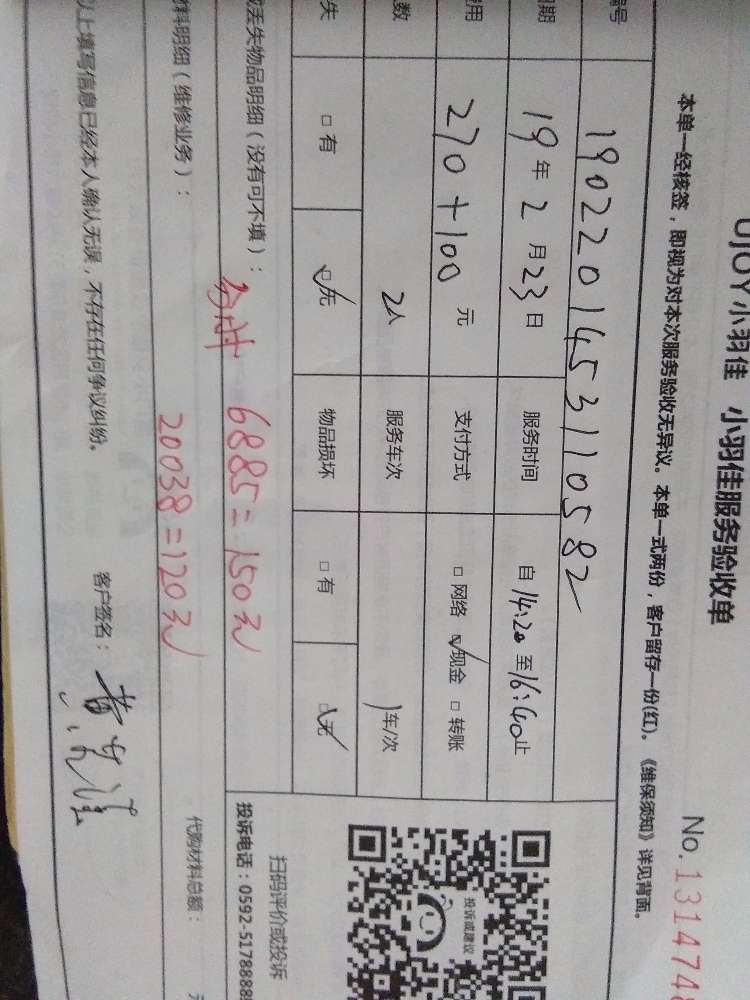 UJOY小羽佳 小羽佳服务验收单
No.131474
本单一经核签，即视为对本次服务验收无异议。本单一式两份，客户留存一份(红)。《维保须知》详见背面。
编号 1902201453110582
日期 19年2月23日 服务时间 自14:20至16:40止
费用 270+100元 支付方式 □网络 ☑现金 □转账
数 2人 服务车次 1车/次
失 □有 ☑无 物品损坏 □有 ☑无
或丢失物品明细（没有可不填）：
6885=150元
材料明细（维修业务）：
20038=120元
代购材料总额：
以上填写信息已经本人确认无误，不存在任何争议纠纷。
客户签名：
投诉或建议
扫码评价或投诉
投诉电话：0592-5178888